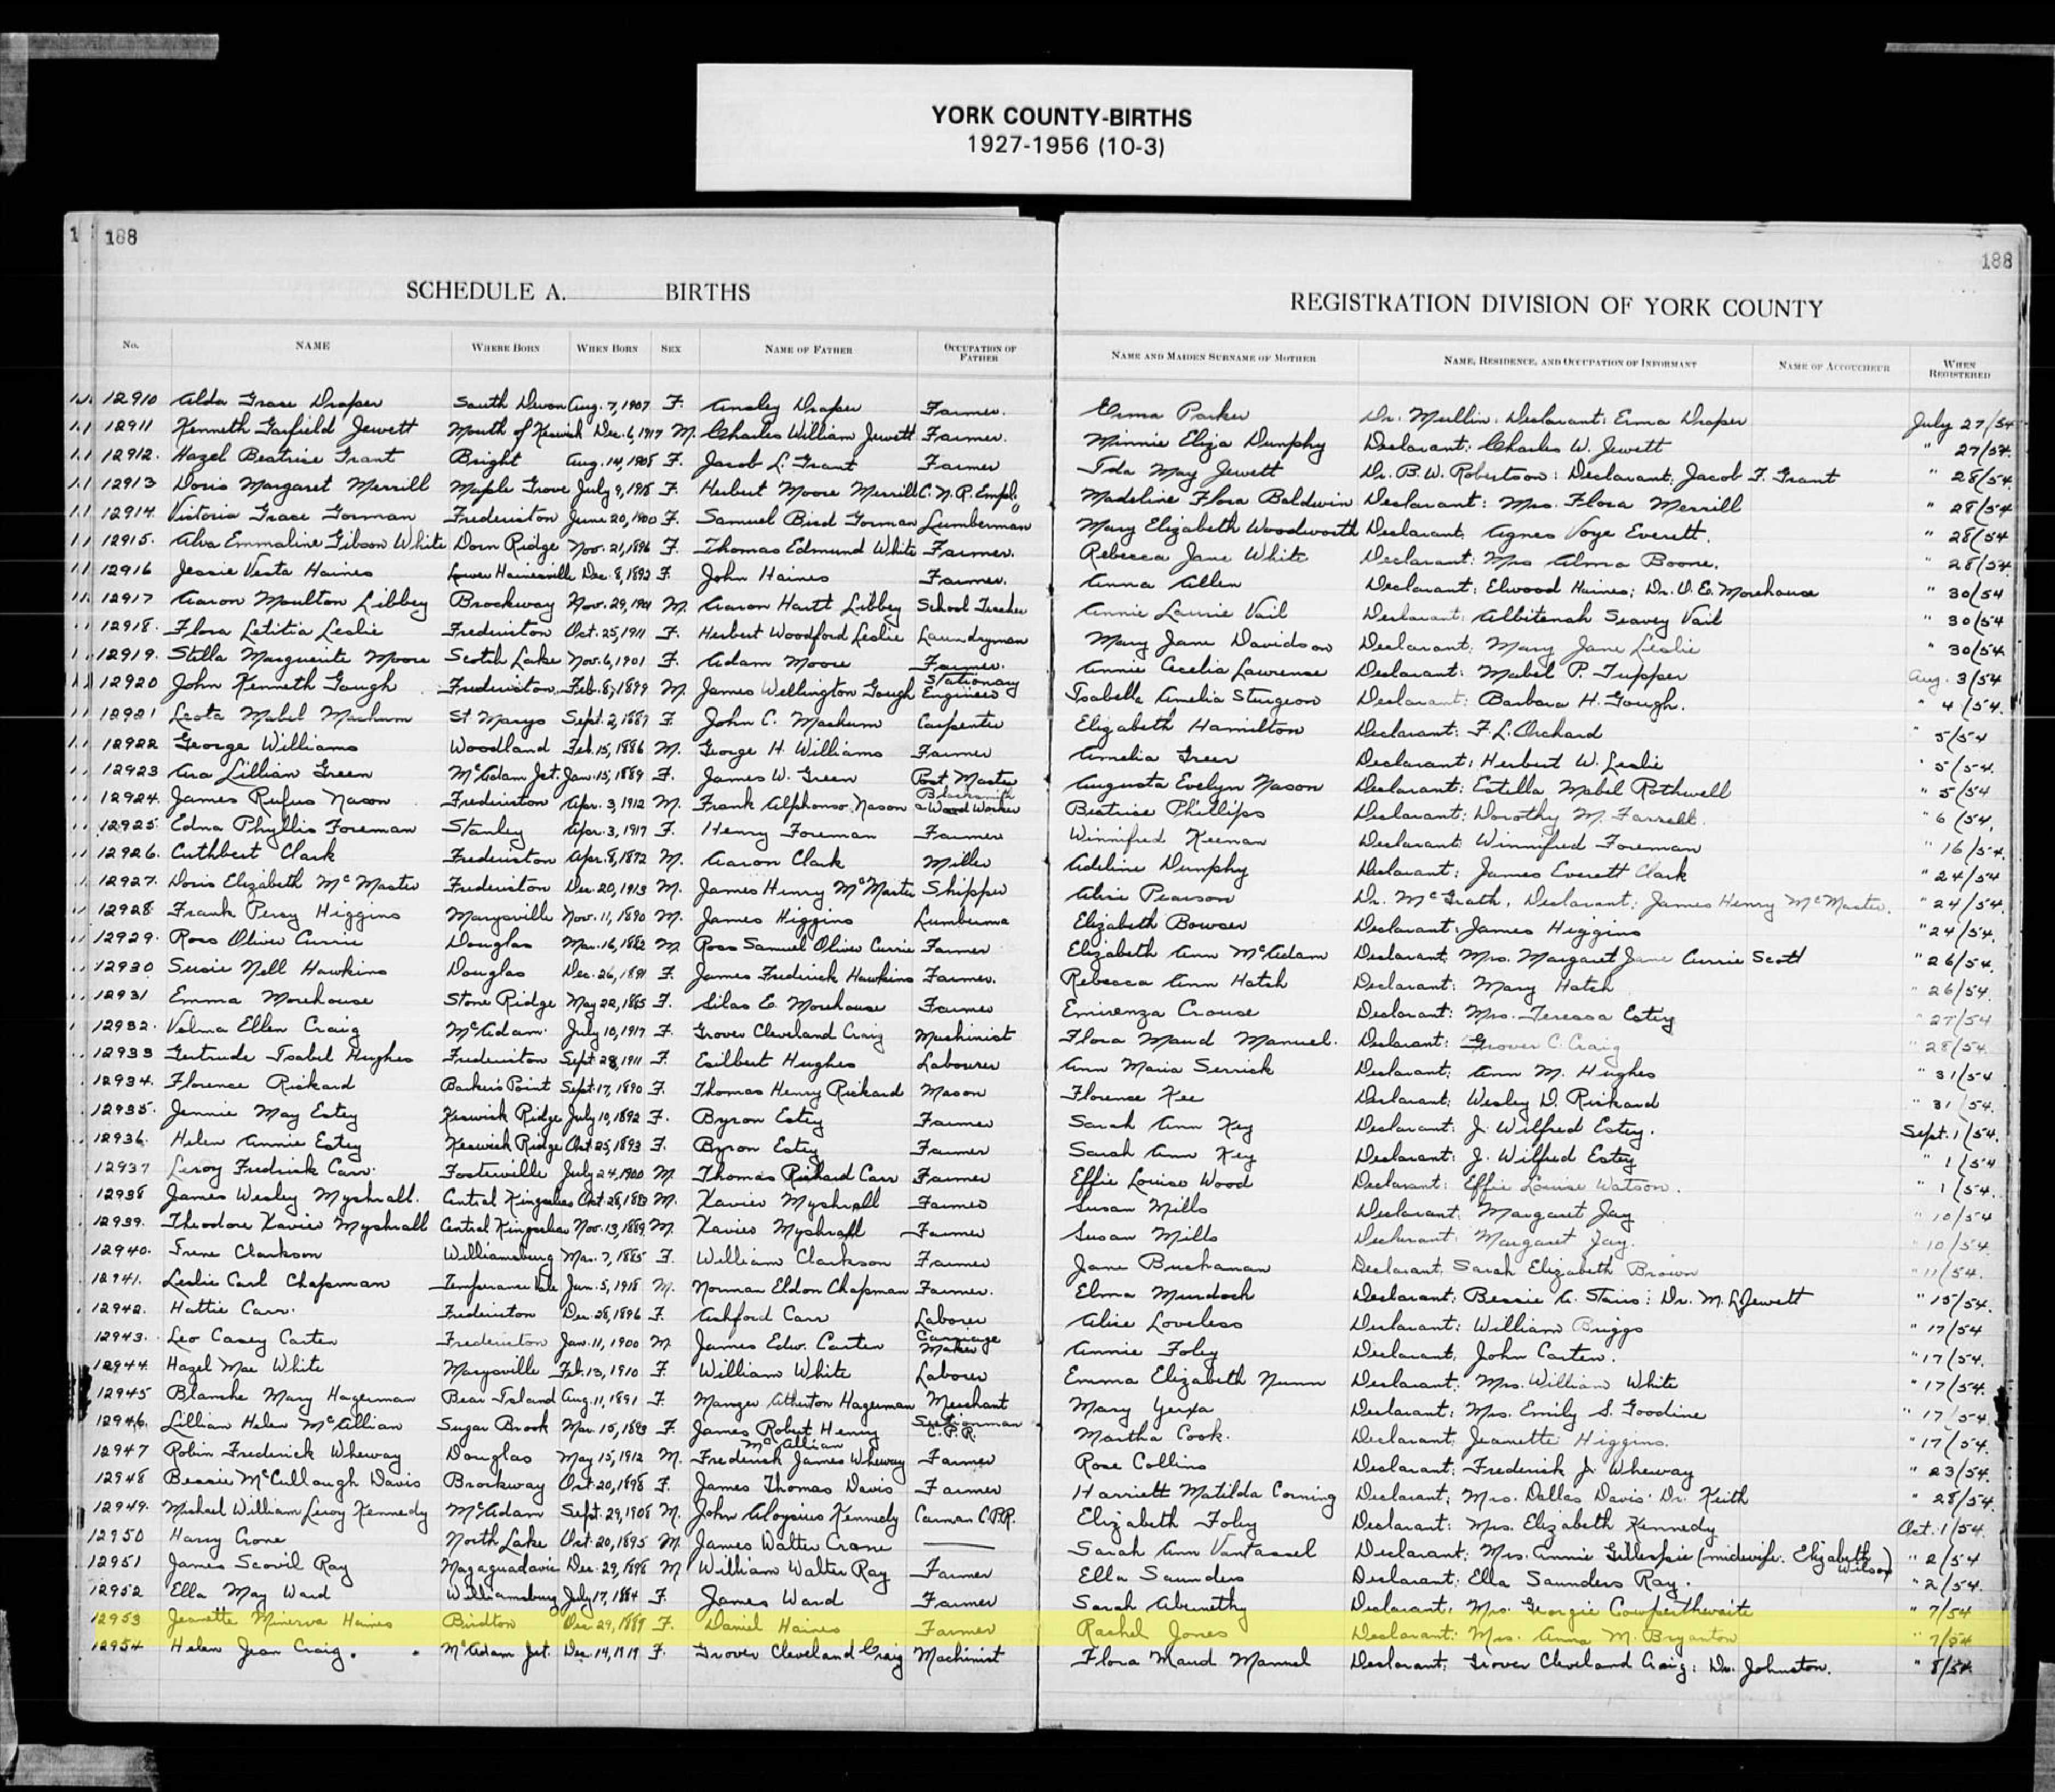 YORK COUNTY-BIRTHS
1927-1956 (10-3)
188
188
SCHEDULE A. BIRTHS
REGISTRATION DIVISION OF YORK COUNTY
No. NAME WHERE BORN WHEN BORN SEX NAME OF FATHER OCCUPATION OF FATHER NAME AND MAIDEN SURNAME OF MOTHER NAME, RESIDENCE, AND OCCUPATION OF INFORMANT NAME OF ACCOUCHEUR WHEN REGISTERED
12910 Alda Grace Draper South Devon Aug. 7, 1907 F. Ansley Draper Farmer. Erma Parker Dr. Mullin. Declarant: Erma Draper July 27/54
12911 Kenneth Garfield Jewett Mouth of Keswick Dec. 6, 1917 M. Charles William Jewett Farmer. Minnie Eliza Dunphy Declarant: Charles W. Jewett " 27/54.
12912. Hazel Beatrice Grant Bright Aug. 14, 1908 F. Jacob L. Grant Farmer Ida May Jewett Dr. B. W. Robertson: Declarant: Jacob F. Grant " 28/54
12913 Doris Margaret Merrill Maple Grove July 9, 1918 F. Herbert Moore Merrill C. N. R. Empl. Madeline Flora Baldwin Declarant: Mrs. Flora Merrill " 28/54
12914 Victoria Grace Gorman Fredericton June 20, 1900 F. Samuel Bird Gorman Lumberman Mary Elizabeth Woodworth Declarant: Agnes Voye Everett. " 28/54
12915. Alva Emmaline Gibson White Dorn Ridge Nov. 21, 1896 F. Thomas Edmund White Farmer. Rebecca Jane White Declarant: Mrs Alma Boone. " 28/54.
12916 Jessie Vesta Haines Lower Hainesville Dec. 8, 1892 F. John Haines Farmer. Anna Allen Declarant: Elwood Haines; Dr. O. E. Morehouse " 30/54
12917 Aaron Moulton Libbey Brockway Nov. 29, 1901 M. Aaron Hartt Libbey School Teacher Annie Laurie Vail Declarant: Albitenah Seavey Vail " 30/54
12918. Flora Letitia Leslie Fredericton Oct. 25, 1911 F. Herbert Woodford Leslie Laundryman Mary Jane Davidson Declarant: Mary Jane Leslie " 30/54
12919. Stella Marguerite Moore Scotch Lake Nov. 6, 1901 F. Adam Moore Farmer. Annie Cecelia Lawrence Declarant: Mabel P. Tupper Aug. 3/54
12920 John Kenneth Gough Fredericton Feb. 8, 1899 M. James Wellington Gough Stationary Engineer Isabella Amelia Sturgeon Declarant: Barbara H. Gough. " 4/54.
12921 Leota Mabel Machum St Marys Sept. 2, 1887 F. John C. Machum Carpenter Elizabeth Hamilton Declarant: F. L. Orchard " 5/54
12922 George Williams Woodland Feb. 15, 1886 M. George H. Williams Farmer Amelia Greer Declarant: Herbert W. Leslie " 5/54.
12923 Ara Lillian Green McAdam Jct. Jan. 15, 1889 F. James W. Green Post Master Augusta Evelyn Nason Declarant: Estella Mabel Rothwell " 5/54
12924. James Rufus Nason Fredericton Apr. 3, 1912 M. Frank Alphonso Nason Blacksmith & Wood Worker Beatrice Phillips Declarant: Dorothy M. Farrell. " 6/54.
12925 Edna Phyllis Foreman Stanley Apr. 3, 1917 F. Henry Foreman Farmer Winnifred Keenan Declarant: Winnifred Foreman " 16/54.
12926. Cuthbert Clark Fredericton Apr. 8, 1872 M. Aaron Clark Miller Adeline Dunphy Declarant: James Everett Clark " 24/54
12927. Doris Elizabeth McMaster Fredericton Dec. 20, 1913 M. James Henry McMaster Shipper Alice Pearson Dr. McGrath. Declarant: James Henry McMaster. " 24/54.
12928 Frank Percy Higgins Marysville Nov. 11, 1890 M. James Higgins Lumberman Elizabeth Bowser Declarant: James Higgins " 24/54.
12929. Ross Oliver Currie Douglas Mar. 16, 1882 M. Ross Samuel Oliver Currie Farmer Elizabeth Ann McAdam Declarant: Mrs. Margaret Jane Currie Scott " 26/54.
12930 Susie Nell Hawkins Douglas Dec. 26, 1891 F. James Frederick Hawkins Farmer. Rebecca Ann Hatch Declarant: Mary Hatch " 26/54.
12931 Emma Morehouse Stone Ridge May 22, 1885 F. Silas E. Morehouse Farmer Emirenza Crouse Declarant: Mrs. Teressa Estey " 27/54
12932. Velma Ellen Craig McAdam. July 10, 1917 F. Grover Cleveland Craig Machinist Flora Maud Manuel. Declarant: Grover C. Craig " 28/54.
12933 Gertrude Isabel Hughes Fredericton Sept. 28, 1911 F. Esilbert Hughes Labourer Ann Maria Serrick Declarant: Ann M. Hughes " 31/54
12934. Florence Rickard Barker's Point Sept. 17, 1890 F. Thomas Henry Rickard Mason Florence Kee Declarant: Wesley D. Rickard " 31/54.
12935. Jennie May Estey Keswick Ridge July 10, 1892 F. Byron Estey Farmer Sarah Ann Key Declarant: J. Wilfred Estey. Sept. 1/54.
12936. Helen Annie Estey Keswick Ridge Oct. 25, 1893 F. Byron Estey Farmer Sarah Ann Key Declarant: J. Wilfred Estey " 1/54
12937 Leroy Fredrick Carr. Fosterville July 24, 1900 M. Thomas Richard Carr Farmer Effie Louise Wood Declarant: Effie Louise Watson. " 1/54.
12938 James Wesley Myshrall. Central Kingsclear Oct. 28, 1883 M. Xavier Myshrall Farmer Susan Mills Declarant: Margaret Jay " 10/54
12939. Theodore Xavier Myshrall Central Kingsclear Nov. 13, 1889 M. Xavier Myshrall Farmer Susan Mills Declarant: Margaret Jay. " 10/54.
12940. Irene Clarkson Williamsburg Mar. 7, 1885 F. William Clarkson Farmer Jane Buchanan Declarant: Sarah Elizabeth Brown " 11/54.
12941. Leslie Carl Chapman Temperance Vale Jan. 5, 1918 M. Norman Eldon Chapman Farmer. Elma Murdoch Declarant: Bessie A. Stairs: Dr. M. L. Jewett " 15/54.
12942. Hattie Carr. Fredericton Dec. 28, 1896 F. Ashford Carr Laborer Alice Loveless Declarant: William Briggs " 17/54
12943. Leo Casey Carten Fredericton Jan. 11, 1900 M. James Edw. Carten Carriage Maker Annie Foley Declarant: John Carten. " 17/54.
12944. Hazel Mae White Marysville Feb. 13, 1910 F. William White Laborer Emma Elizabeth Nunn Declarant: Mrs. William White " 17/54.
12945 Blanche Mary Hagerman Bear Island Aug. 11, 1891 F. Manzer Atherton Hagerman Merchant Mary Yerxa Declarant: Mrs. Emily S. Goodine " 17/54.
12946. Lillian Helen McAllian Sugar Brook Mar. 15, 1893 F. James Robert Henry McAllian Sectionman C.P.R. Martha Cook. Declarant: Jeanette Higgins. " 17/54.
12947 Robin Frederick Wheway Douglas May 15, 1912 M. Frederick James Wheway Farmer Rose Collins Declarant: Frederick J. Wheway " 23/54.
12948 Bessie McCullough Davis Brockway Oct. 20, 1898 F. James Thomas Davis Farmer Harriett Matilda Corning Declarant: Mrs. Dallas Davis. Dr. Keith " 28/54.
12949. Michael William Leroy Kennedy McAdam Sept. 29, 1908 M. John Aloysius Kennedy Carman C.P.R. Elizabeth Foley Declarant: Mrs. Elizabeth Kennedy Oct. 1/54.
12950 Harry Crone North Lake Oct. 20, 1895 M. James Walter Crone Sarah Ann VanTassel Declarant: Mrs. Annie Gillespie (midwife. Elizabeth Wilson) " 2/54
12951 James Scovil Ray Magaguadavic Dec. 29, 1898 M William Walter Ray Farmer Ella Saunders Declarant: Ella Saunders Ray. " 2/54.
12952 Ella May Ward Williamsburg July 17, 1884 F. James Ward Farmer Sarah Abernethy Declarant: Mrs. Georgie Cowperthwaite " 7/54
12953 Jeanette Minerva Haines Birdton Dec 29, 1889 F. Daniel Haines Farmer Rachel Jones Declarant: Mrs. Anna M. Bryanton " 7/54
12954 Helen Jean Craig. McAdam Jct. Dec. 14, 1919 F. Grover Cleveland Craig Machinist Flora Maud Manuel Declarant: Grover Cleveland Craig: Dr. Johnston. " 8/54.